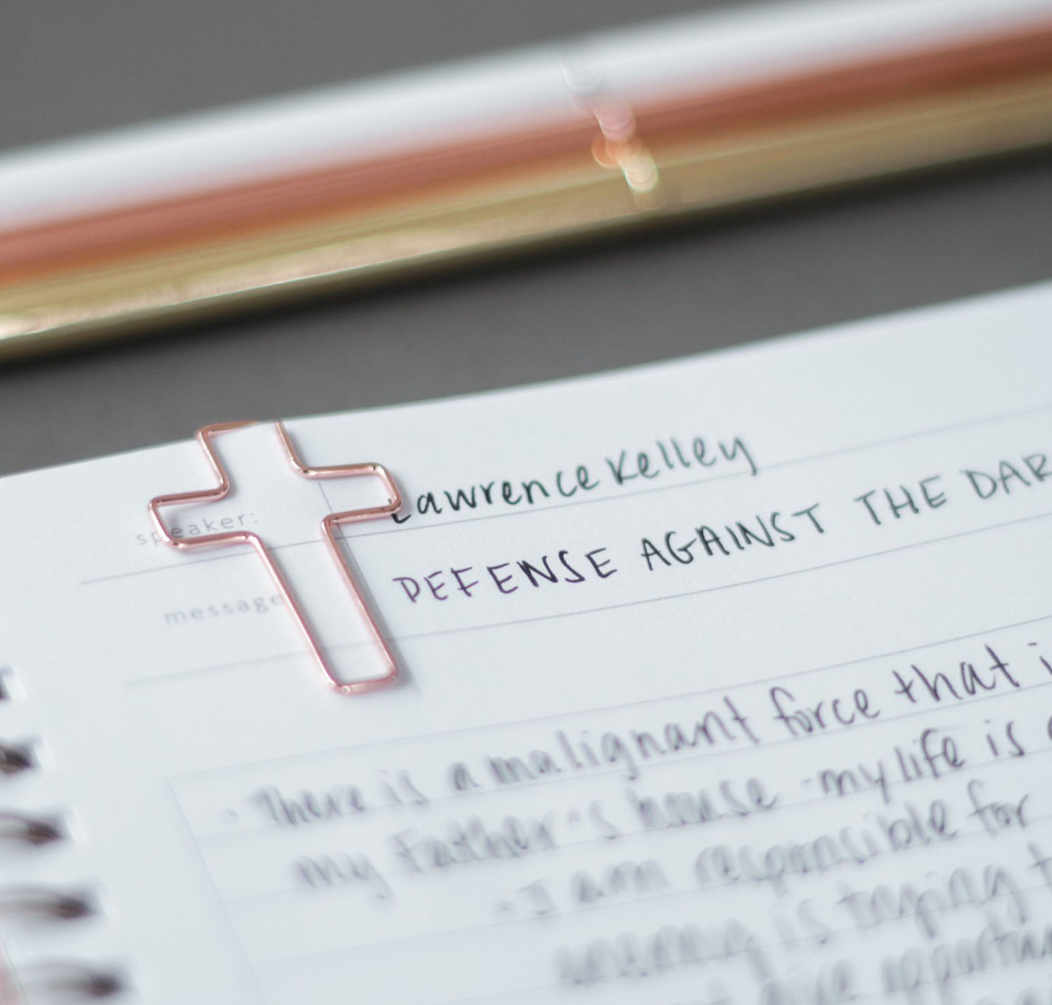 speaker: Lawrence Kelley
message DEFENSE AGAINST THE DAR
• There is a malignant force that i
my Father's house - my life is
• I am responsible for
enemy is trying t
give opportun